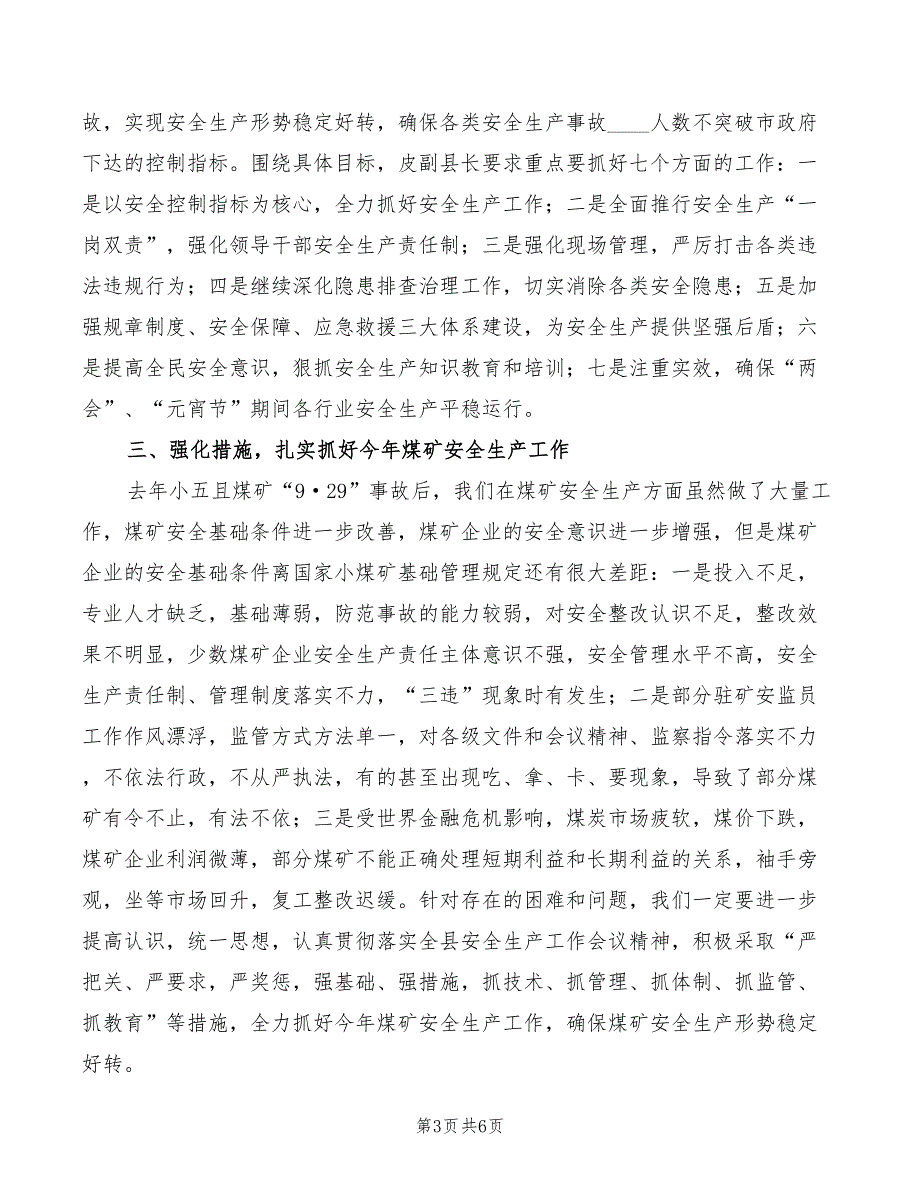 故，实现安全生产形势稳定好转，确保各类安全生产事故____人数不突破市政府
下达的控制指标。围绕具体目标，皮副县长要求重点要抓好七个方面的工作：一
是以安全控制指标为核心，全力抓好安全生产工作；二是全面推行安全生产“一
岗双责”，强化领导干部安全生产责任制；三是强化现场管理，严厉打击各类违
法违规行为；四是继续深化隐患排查治理工作，切实消除各类安全隐患；五是加
强规章制度、安全保障、应急救援三大体系建设，为安全生产提供坚强后盾；六
是提高全民安全意识，狠抓安全生产知识教育和培训；七是注重实效，确保“两
会”、“元宵节”期间各行业安全生产平稳运行。
三、强化措施，扎实抓好今年煤矿安全生产工作
去年小五且煤矿“9·29”事故后，我们在煤矿安全生产方面虽然做了大量工
作，煤矿安全基础条件进一步改善，煤矿企业的安全意识进一步增强，但是煤矿
企业的安全基础条件离国家小煤矿基础管理规定还有很大差距：一是投入不足，
专业人才缺乏，基础薄弱，防范事故的能力较弱，对安全整改认识不足，整改效
果不明显，少数煤矿企业安全生产责任主体意识不强，安全管理水平不高，安全
生产责任制、管理制度落实不力，“三违”现象时有发生；二是部分驻矿安监员
工作作风漂浮，监管方式方法单一，对各级文件和会议精神、监察指令落实不力
，不依法行政，不从严执法，有的甚至出现吃、拿、卡、要现象，导致了部分煤
矿有令不止，有法不依；三是受世界金融危机影响，煤炭市场疲软，煤价下跌，
煤矿企业利润微薄，部分煤矿不能正确处理短期利益和长期利益的关系，袖手旁
观，坐等市场回升，复工整改迟缓。针对存在的困难和问题，我们一定要进一步
提高认识，统一思想，认真贯彻落实全县安全生产工作会议精神，积极采取“严
把关、严要求，严奖惩，强基础、强措施，抓技术、抓管理、抓体制、抓监管、
抓教育”等措施，全力抓好今年煤矿安全生产工作，确保煤矿安全生产形势稳定
好转。
第3页 共6页